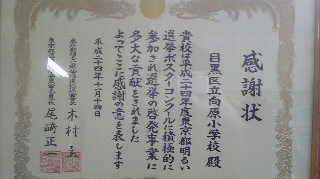 感謝状
目黒区立向原小学校 殿
貴校は平成二十四年度東京都明るい
選挙ポスターコンクールに積極的に
参加され選挙の啓発事業に
多大な貢献をされました
よってここに感謝の意を表します
平成二十四年十月十四日
東京都選挙管理委員会委員長
尾崎正一